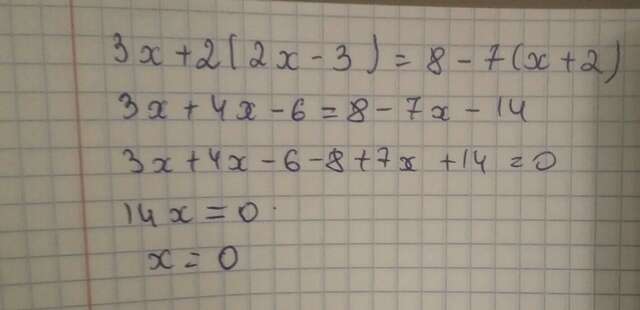 3x + 2(2x - 3) = 8 - 7(x + 2)
3x + 4x - 6 = 8 - 7x - 14
3x + 4x - 6 - 8 + 7x + 14 = 0
14x = 0
x = 0